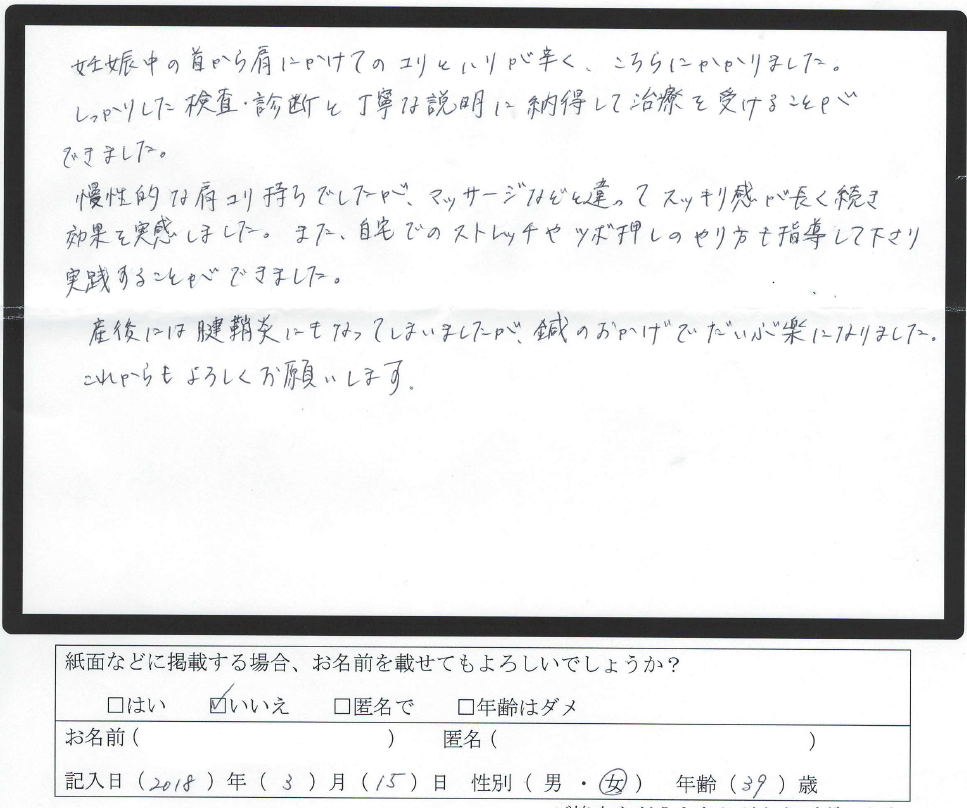 妊娠中の首から肩にかけてのコリとハリが辛く、こちらにかかりました。
しっかりした検査・診断と丁寧な説明に納得して治療を受けることが
できました。
慢性的な肩コリ持ちでしたが、マッサージなどと違ってスッキリ感が長く続き
効果を実感しました。また、自宅でのストレッチやツボ押しのやり方も指導して下さり
実践することができました。
産後には腱鞘炎にもなってしまいましたが、鍼のおかげでだいぶ楽になりました。
これからもよろしくお願いします。
紙面などに掲載する場合、お名前を載せてもよろしいでしょうか?
□はい ☑いいえ □匿名で □年齢はダメ
お名前( ) 匿名( )
記入日(2018)年(3)月(15)日 性別(男・女) 年齢(39)歳